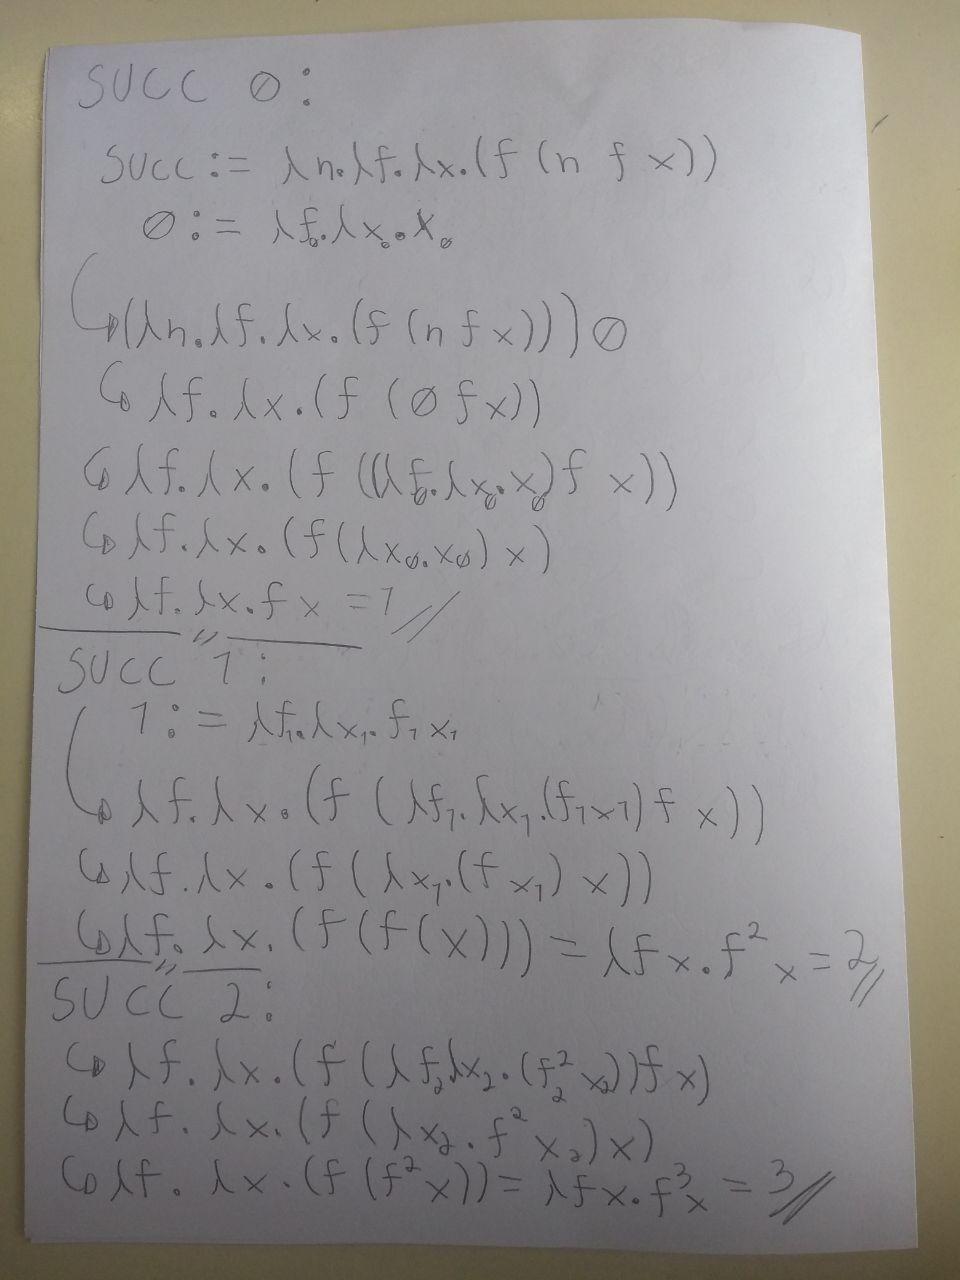 SUCC 0:
SUCC := λn.λf.λx.(f (n f x))
0 := λf₀.λx₀.x₀
↳(λn.λf.λx.(f (n f x)))0
↳ λf.λx.(f (0 f x))
↳ λf.λx.(f ((λf₀.λx₀.x₀)f x))
↳ λf.λx.(f(λx₀.x₀) x)
↳ λf.λx.f x = 1//
SUCC 1:
1 := λf₁.λx₁.f₁ x₁
↳ λf.λx.(f (λf₁.λx₁.(f₁x1)f x))
↳ λf.λx.(f(λx₁.(f x₁) x))
↳ λf.λx.(f(f(x))) = λfx.f² x = 2//
SUCC 2:
↳ λf.λx.(f(λf₂λx₂.(f₂² x₂))f x)
↳ λf.λx.(f(λx₂.f² x₂)x)
↳ λf.λx.(f(f² x)) = λfx.f³x = 3//